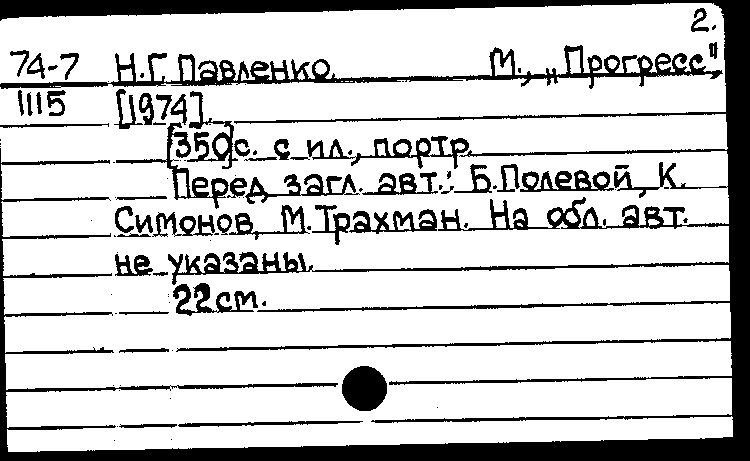 2.
74-7 Н.Г. Павленко. М., „Прогресс",
1115 [1974].
[350]с. с ил., портр.
Перед загл. авт.: Б.Полевой, К.
Симонов, М.Трахман. На обл. авт.
не указаны.
22см.